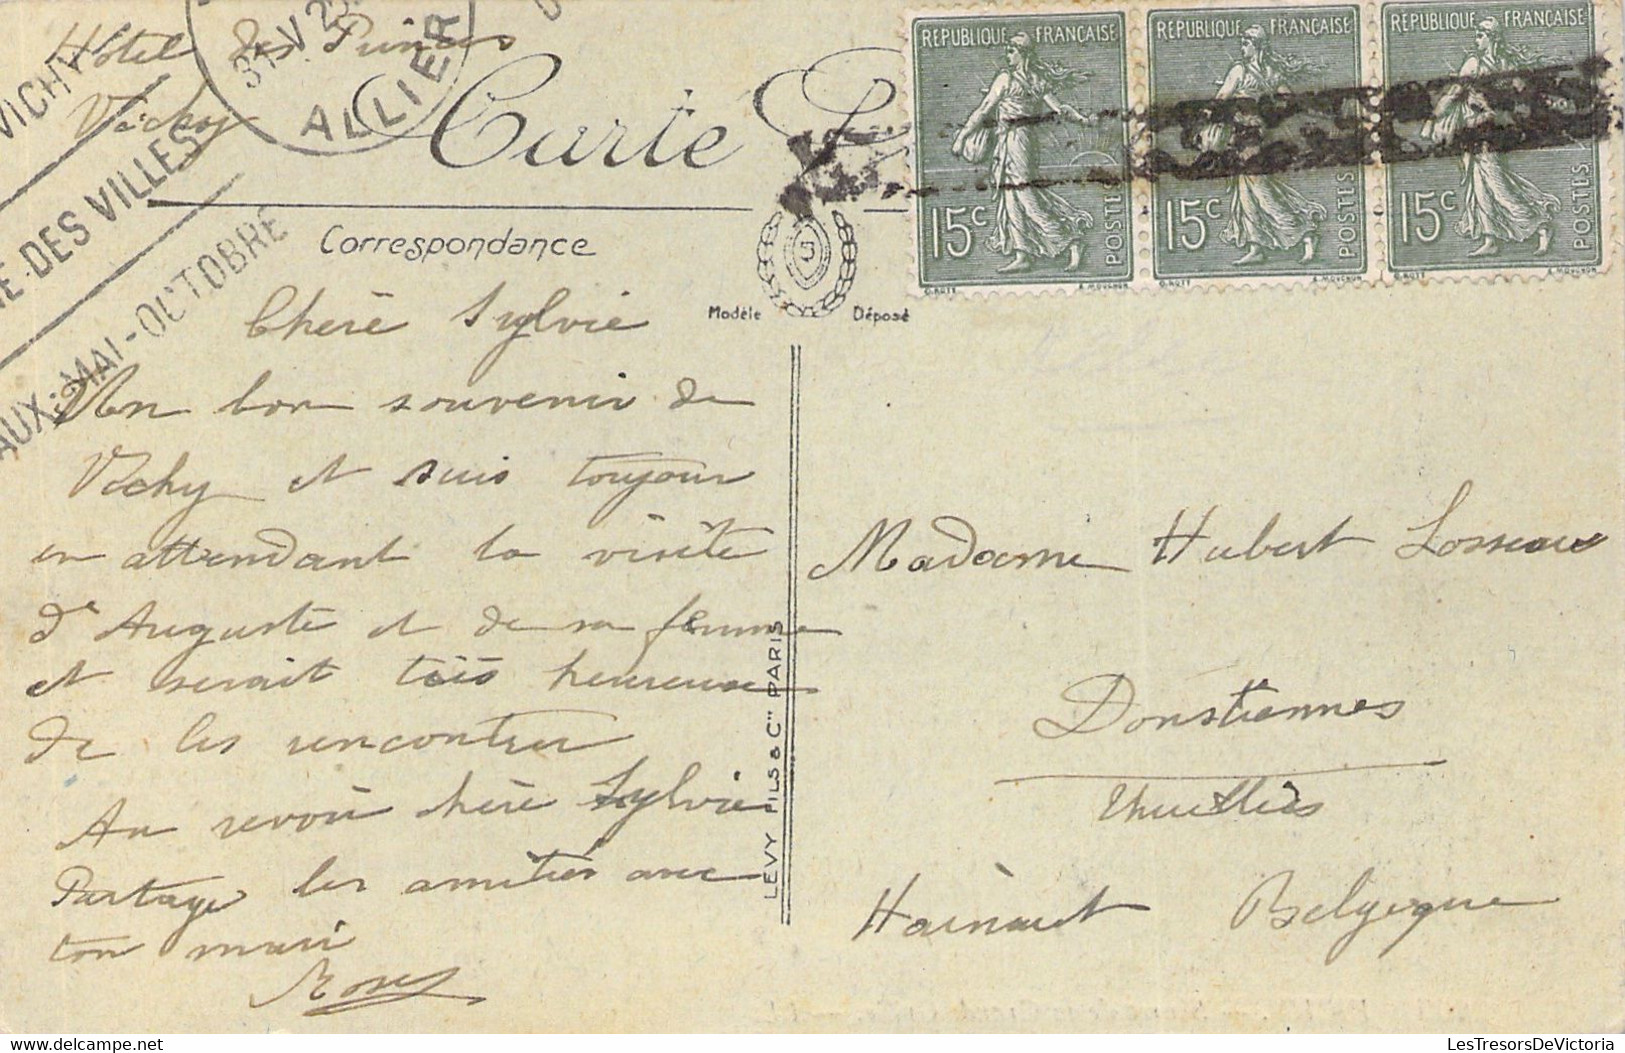 Hôtel des Princes
Vichy
VICHY
DES VILLES
AUX: MAI-OCTOBRE
31 V 25
ALLIER
Carte P
RÉPUBLIQUE FRANÇAISE
15c
POSTES
O.ROTY
E.MOUCHON
RÉPUBLIQUE FRANÇAISE
15c
POSTES
O.ROTY
E.MOUCHON
RÉPUBLIQUE FRANÇAISE
15c
POSTES
O.ROTY
E.MOUCHON
Correspondance
Modèle Déposé
Chère Sylvie
Un bon souvenir de
Vichy et suis toujour
en attendant la visite
d'Auguste et de sa femme
et serait très heureuse
de les rencontrer
Au revoir chère Sylvie
Partage les amitiés avec
ton mari
LEVY FILS & Cie PARIS
Madame Hubert Losseau
Donstiennes
Thuillies
Hainaut Belgique
LesTresorsDeVictoria
delcampe.net